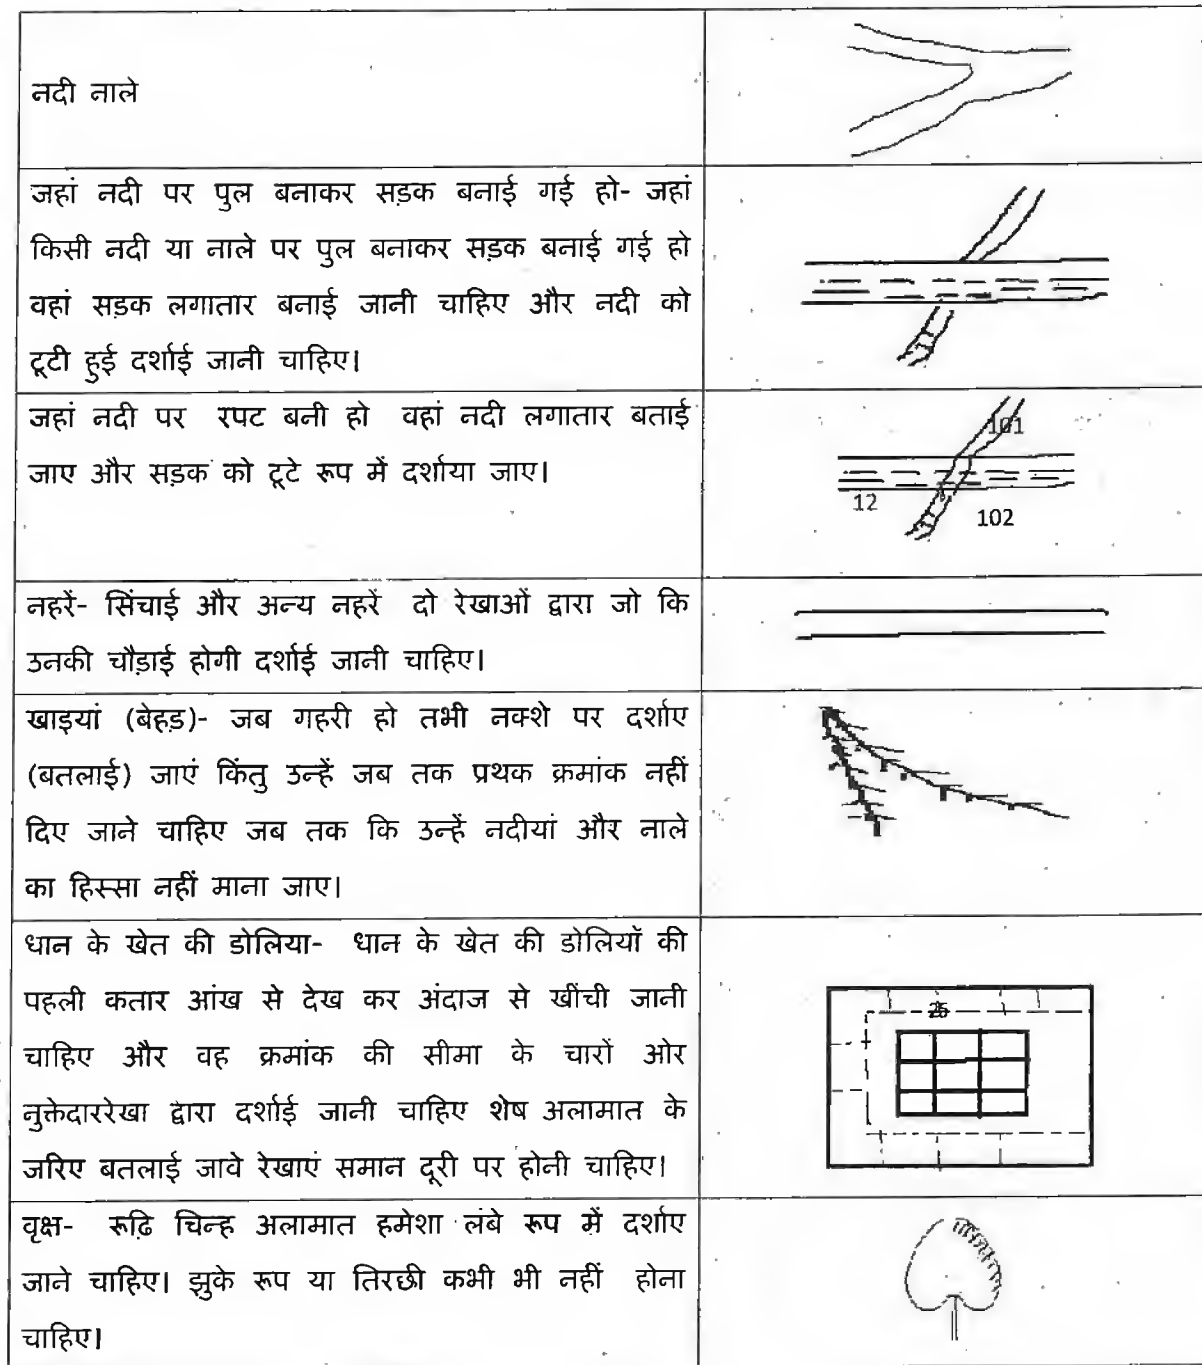 नदी नाले
जहां नदी पर पुल बनाकर सड़क बनाई गई हो- जहां
किसी नदी या नाले पर पुल बनाकर सड़क बनाई गई हो
वहां सड़क लगातार बनाई जानी चाहिए और नदी को
टूटी हुई दर्शाई जानी चाहिए।
जहां नदी पर रपट बनी हो वहां नदी लगातार बताई
जाए और सड़क को टूटे रूप में दर्शाया जाए।
101
12
102
नहरें- सिंचाई और अन्य नहरें दो रेखाओं द्वारा जो कि
उनकी चौड़ाई होगी दर्शाई जानी चाहिए।
खाइयां (बेहड़)- जब गहरी हो तभी नक्शे पर दर्शाए
(बतलाई) जाएं किंतु उन्हें जब तक प्रथक क्रमांक नहीं
दिए जाने चाहिए जब तक कि उन्हें नदीयां और नाले
का हिस्सा नहीं माना जाए।
धान के खेत की डोलिया- धान के खेत की डोलियॉ की
पहली कतार आंख से देख कर अंदाज से खींची जानी
चाहिए और वह क्रमांक की सीमा के चारों ओर
नुक्तेदाररेखा द्वारा दर्शाई जानी चाहिए शेष अलामात के
जरिए बतलाई जावे रेखाएं समान दूरी पर होनी चाहिए।
25
वृक्ष- रूढ़ि चिन्ह अलामात हमेशा लंबे रूप में दर्शाए
जाने चाहिए। झुके रूप या तिरछी कभी भी नहीं होना
चाहिए।